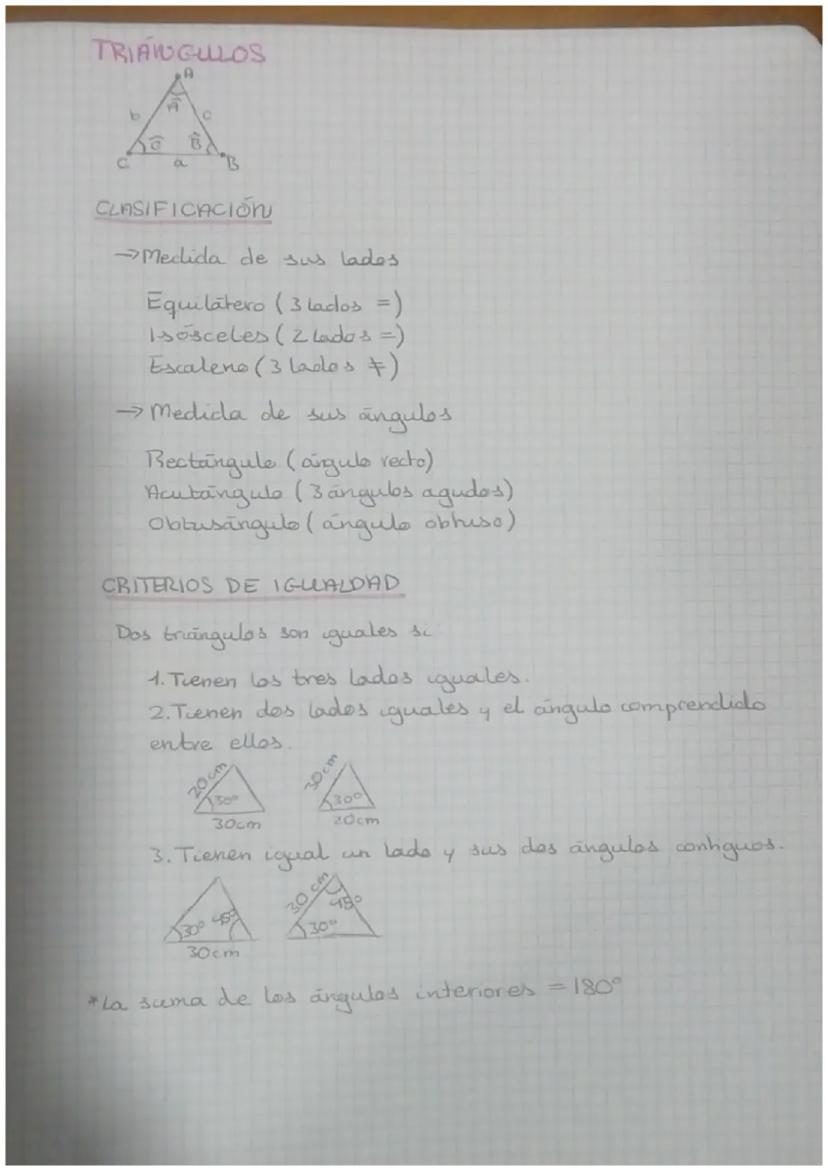 TRIÁNGULOS
A
Â
b c
Ĉ B̂
C a B
CLASIFICACIÓN
→Medida de sus lados
Equilátero (3 lados =)
Isósceles (2 lados =)
Escaleno (3 lados ≠)
→ Medida de sus ángulos
Rectángulo (ángulo recto)
Acutángulo (3 ángulos agudos)
Obtusángulo (ángulo obtuso)
CRITERIOS DE IGUALDAD
Dos triángulos son iguales si
1. Tienen los tres lados iguales.
2. Tienen dos lados iguales y el ángulo comprendido
entre ellos.
20cm 30cm
30° 30°
30cm 20cm
3. Tienen igual un lado y sus dos ángulos contiguos.
30cm 45°
30° 45° 30°
30cm
*La suma de los ángulos interiores = 180°